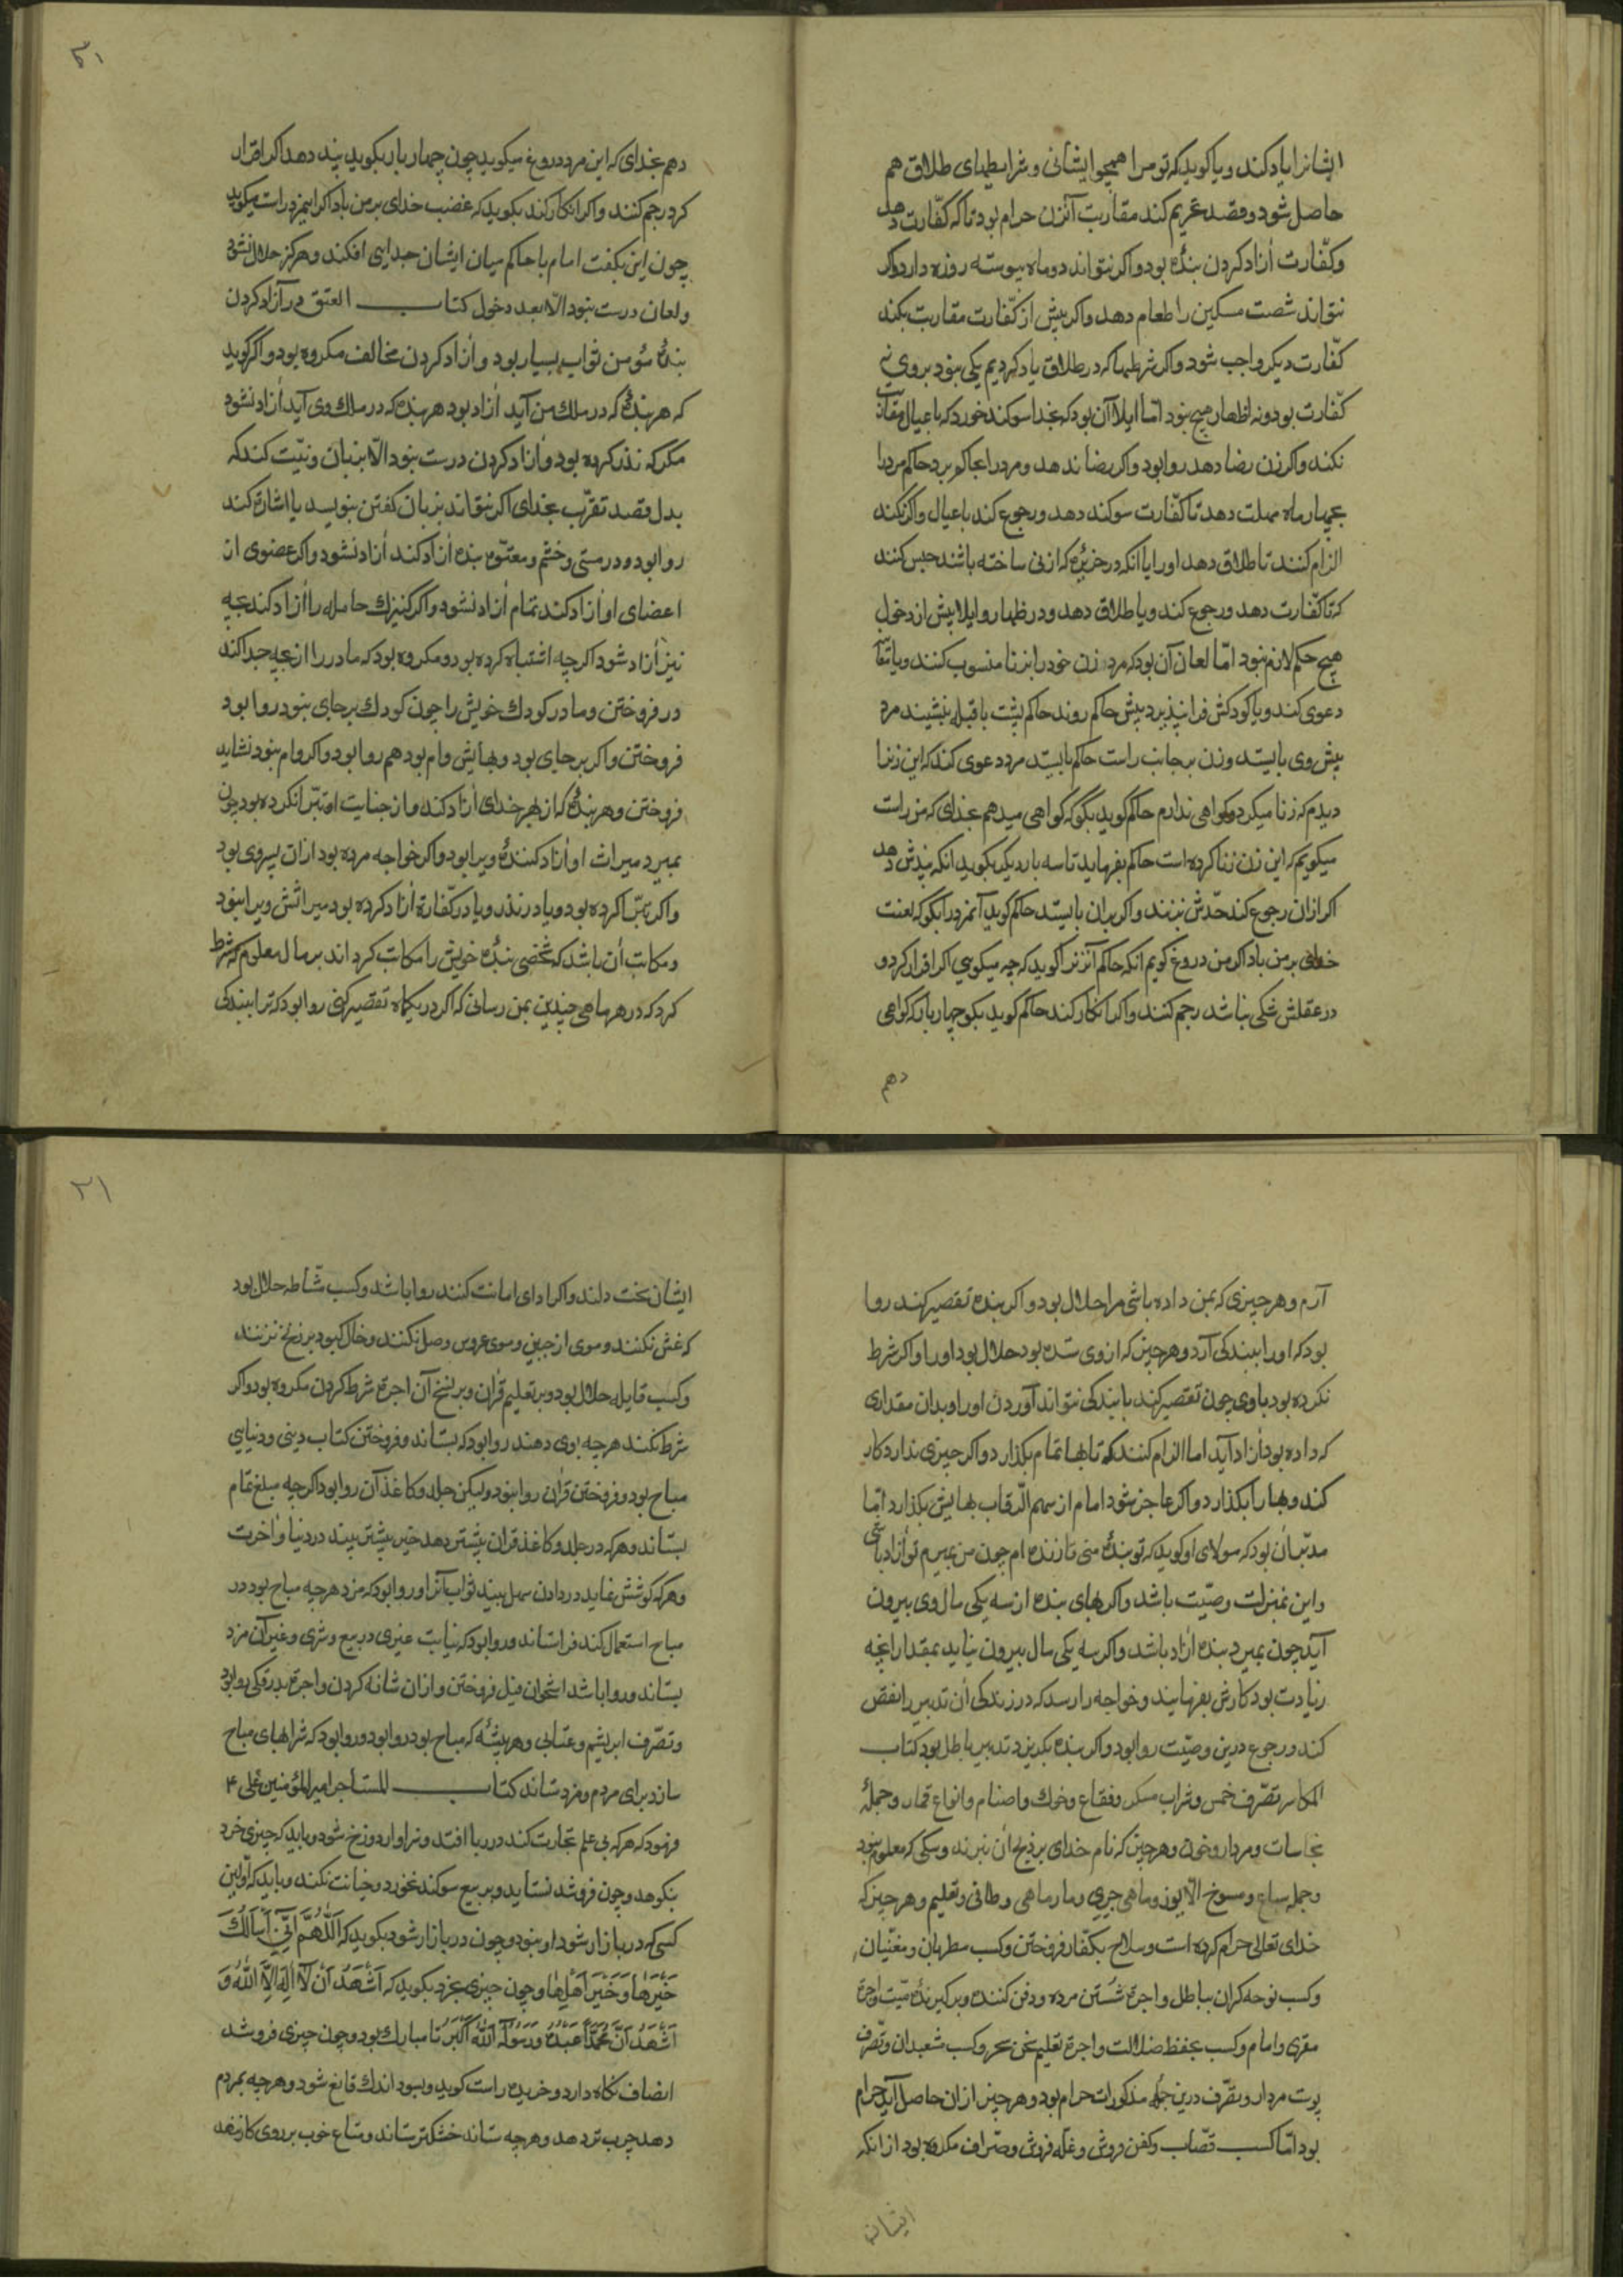 ایشانرا یاد کند و یا کوید که تو مرا همچو ایشانی و شرایطهای طلاق هم
حاصل شود و قصد تحریم کند مقاربت آنزن حرام بود تا که کفّارت دهد
و کفّارت آزاد کردن بندهٔ بود و اکر نتواند دو ماه پیوسته روزه دارد و اکر
نتواند شصت مسکین را طعام دهد و اکر پیش از کفّارت مقاربت بکند
کفّارت دیکر واجب شود و اکر شرطها که در طلاق یاد کردیم یکی نبود بر وی نه
کفّارت بود و نه اظهار هیچ نبود امّا ایلا آن بود که بخدا سوکند خورد که با عیال مقاربت
نکند و اکر زن رضا دهد روا بود و اکر رضا ندهد و مرد را بحاکم برد حاکم مرد را
بچهار ماه مهلت دهد تا کفّارت سوکند دهد و رجوع کند با عیال و اکر نکند
الزام کنند تا طلاق دهد او را یا انکه در حزیره که از نی ساخته باشند حبس کنند
که تا کفّارت دهد و رجوع کند و یا طلاق دهد و در ظهار و ایلا پیش از دخول
هیچ حکم لازم نبود امّا لعان آن بود که مرد زن خود را بزنا منسوب کنند و یا
دعوی کند و یا کودکش فرا نپذیرد پیش حاکم روند حاکم پشت با قبله بنشیند مرد
پیش وی بایستد و زن بر جانب راست حاکم بایستد مرد دعوی کند که این زنرا
دیدم که زنا میکرد و کواهی ندارم حاکم کوید بکو که کواهی میدهم بخدای که من راست
میکویم که این زن زنا کرده است حاکم بفرماید تا سه بار دیکر بکوید انکه پندش دهد
اکر ازان رجوع کند حدّش بزنند و اکر بران بایستد حاکم کوید آنمرد را بکو که لعنت
خدای بر من باد اکر من دروغ کویم انکه حاکم آنزنرا کوید که چه میکویی اکر اقرار کرد و
در عقلش شکی نباشد رجم کنند و اکر انکار کند حاکم کوید بکو چهار بار که کواهی
دهم
۳۱
دهم بخدای که این مرد دروغ میکوید چون چهار بار بکوید پند دهد اکر اقرار
کرد رجم کنند و اکر انکار کند بکوید که غضب خدای بر من باد اکر اینمرد راست میکوید
چون این بکفت امام یا حاکم میان ایشان جدایی افکند و هرکز حلال نشود
و لعان درست نبود الّا بعد دخول کتاب العتق در آزاد کردن
بندهٔ مؤمن ثواب بسیار بود و آزاد کردن مخالف مکروه بود و اکر کوید
که هر بندهٔ که در ملک من آید آزاد بود هر بنده که در ملک وی آید آزاد نشود
مکر که نذر کرده بود و آزاد کردن درست نبود الّا بزبان و نیّت کند که
بدل قصد تقرّب بخدای اکر نتواند بزبان کفتن بنویسد یا اشارة کند
روا بود و در مستی و خشم و معتوه بنده آزاد کند آزاد نشود و اکر عضوی از
اعضای او آزاد کند تمام آزاد نشود و اکر کنیزک حامله را آزاد کند بچه
نیز آزاد شود اکرچه اشتباه کرده بود و مکروه بود که مادر را از بچه جدا کند
در فروختن و مادر کودک خویش را چون کودک بر جای نبود روا بود
فروختن و اکر بر جای بود و بهایش وام بود هم روا بود و اکر وام نبود نشاید
فروختن و هر بندهٔ که از بهر خدای آزاد کند و از جنایت او تبرّا نکرده بود چون
بمیرد میراث او آزاد کنندهٔ ویرا بود و اکر خواجه مرده بود ازان پسروی بود
و اکر تبرّا کرده بود و یا در نذر و یا در کفّارة آزاد کرده بود میراثش ویرا نبود
و مکاتب آن باشد که شخصی بندهٔ خویش را مکاتب کرداند بر مال معلوم که شرط
کرد که در هر ماهی چندین بمن رسانی که اکر در یکماه تقصیر کنی روا بود که ترا ببندکی
آرم و هر چیزی که بمن داده باشی مرا حلال بود و اکر بنده تقصیر کند روا
بود که او را ببندکی آرد و هر چیز که از وی ستده بود حلال بود او را و اکر شرط
نکرده بود با وی چون تقصیر کند با بندکی نتواند آوردن او را و بدان مقداری
که داده بود آزاد آید اما الزام کنند که تا بها تمام بکذارد و اکر چیزی ندارد کار
کند و بها را بکذارد و اکر عاجز شود امام از سهم الرّقاب بهایش بکذارد امّا
مدبّر آن بود که مولای او کوید که تو بندهٔ منی تا زنده ام چون من بمیرم تو آزاد باشی
و این بمنزلت وصیّت باشد و اکر بهای بنده از سه یکی مال وی بیرون
آید چون بمیرد بنده آزاد باشد و اکر سه یکی مال بیرون نیاید بمقدار انچه
زیادت بود کارش بفرمایند و خواجه را رسد که در زندکی آن تدبیر را نقض
کند و رجوع درین وصیّت روا بود و اکر بنده بکریزد تدبیر باطل بود کتاب
المکاسب تصّرف خمر و شراب مسکر و فقاع و خوک و اصنام و انواع قمار و جملهٔ
نجاسات و مردار و خون و هر چیز که نام خدای بر ذبح آن نبرند و سکی که معلوم نبود
و جمله سباع و مسوخ الّا یوز و ماهی جرّی و مارماهی و طافی و تعلیم و هر چیز که
خدای تعالی حرام کرده است و سلاح بکفّار فروختن و کسب مطربان و مغنّیان
و کسب نوحه کران بباطل و اجرة شستن مرده و دفن کننده و بر کیرندهٔ میّت و اجرة
مقری و امام و کسب بحفظ ضلالت و اجرة تعلیم سحر و کسب شعبدان و تصّرف
پوست مردار و تصّرف درین جمله مذکورات حرام بود و هر چیز ازان حاصل آید حرام
بود امّا کسب قصّاب و کفن فروش و غلّه فروش و صرّاف مکروه بود از انکه
ایشان
۲۱
ایشان سخت دلند و اکر ادای امانت کنند روا باشد و کسب مشّاطه حلال بود
که غش نکنند و موی از جبین و موی عروس وصل نکنند و خال کبود بر زنخ نزنند
و کسب قابله حلال بود و بر تعلیم قرآن و بر نسخ آن اجرة شرط کردن مکروه بود و اکر
شرط نکند هرچه بوی دهند روا بود که بستاند و فروختن کتاب دینی و دنیایی
مباح بود و فروختن قرآن روا نبود ولیکن جلد و کاغذ آن روا بود اکرچه مبلغ تمام
بستاند و هر که در جلد و کاغذ قرآن بیشتر دهد خیر بیشتر بیند در دنیا و آخرت
و هر که کوشش نماید در دادن سهل بیند ثواب آنرا و روا بود که مزد هرچه مباح بود در
مباح استعمال کند فراستاند و روا بود که نیابت غیری در بیع و شری و غیر آن مزد
بستاند و روا باشد استخوان فیل فروختن و ازان شانه کردن و اجرة بدرقکی روا بود
و تصّرف ابریشم و عتابی و هر پیشهٔ که مباح بود روا بود و روا بود که شرابهای مباح
سازد برای مردم و مزد ستاند کتاب المتاجر امیر المؤمنین علی ۴
فرمود که هر که بی علم تجارت کند در ربا افتد و سزاوار دوزخ شود و باید که چیزی خرد
نکوهد و چون فروشد نستاید و بر بیع سوکند نخورد و خیانت نکند و باید که اوّلین
کسی که در بازار شود او نبود و چون در بازار شود بکوید که اَللّٰهُمَّ اِنِّی اَسْاَلُکَ
خَیْرَهٰا وَ خَیْرَ اَهْلِهٰا و چون چیزی بخرد بکوید که اَشْهَدُ اَنْ لَا اِلٰهَ اِلَّا اللّٰهُ وَ
اَشْهَدُ اَنَّ مُحَمَّدًا عَبْدُهُ وَ رَسُولُهُ اَللّٰهُ اَکْبَرُ تا مبارک بود و چون چیزی فروشد
انصاف نکاه دارد و خریده راست کوید و بسود اندک قانع شود و هرچه بمردم
دهد چرب تر دهد و هرچه ستاند خشکتر ستاند و متاع خوب بر روی کار ننهد